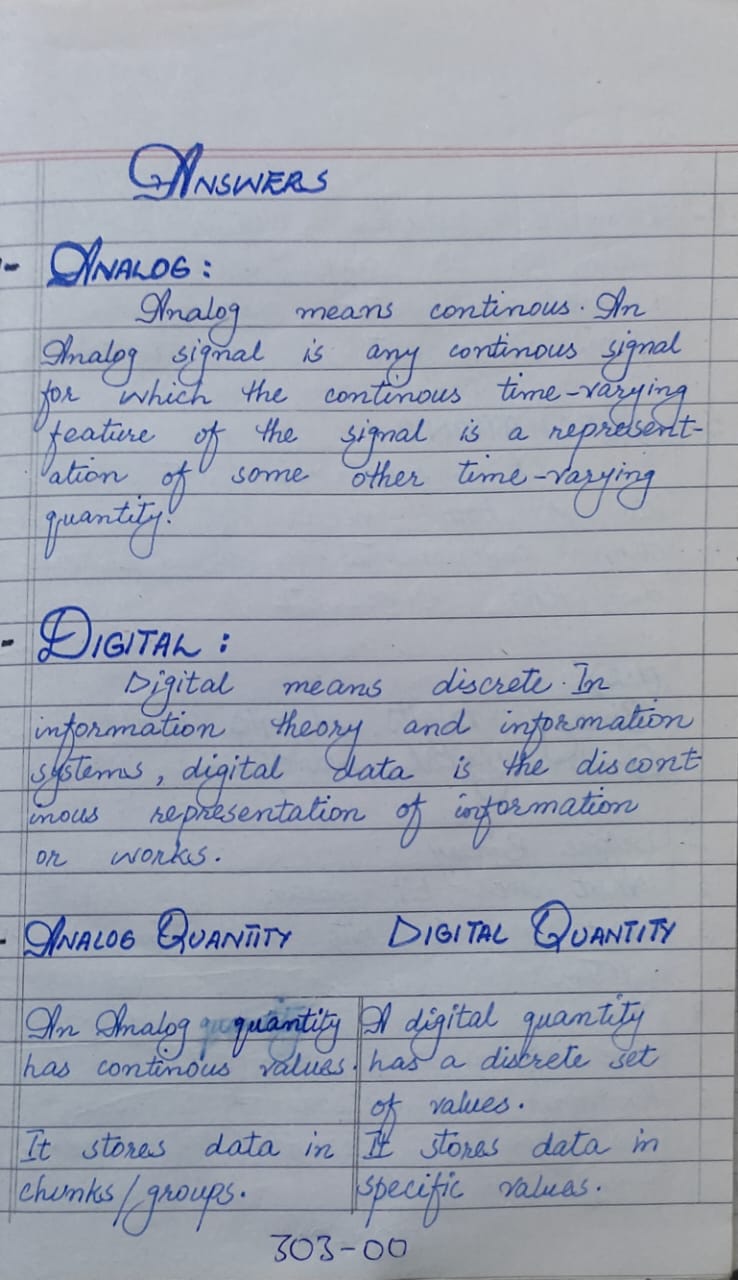 ANSWERS
- ANALOG:
Analog means continous. An
Analog signal is any continous signal
for which the continous time-varying
feature of the signal is a represent-
ation of some other time-varying
quantity.
- DIGITAL:
Digital means discrete. In
information theory and information
systems, digital data is the discont
inous representation of information
or works.
- ANALOG QUANTITY DIGITAL QUANTITY
An Analog quantity
has continous values.
It stores data in
chunks/groups.
A digital quantity
has a discrete set
of values.
It stores data in
specific values.
303-00